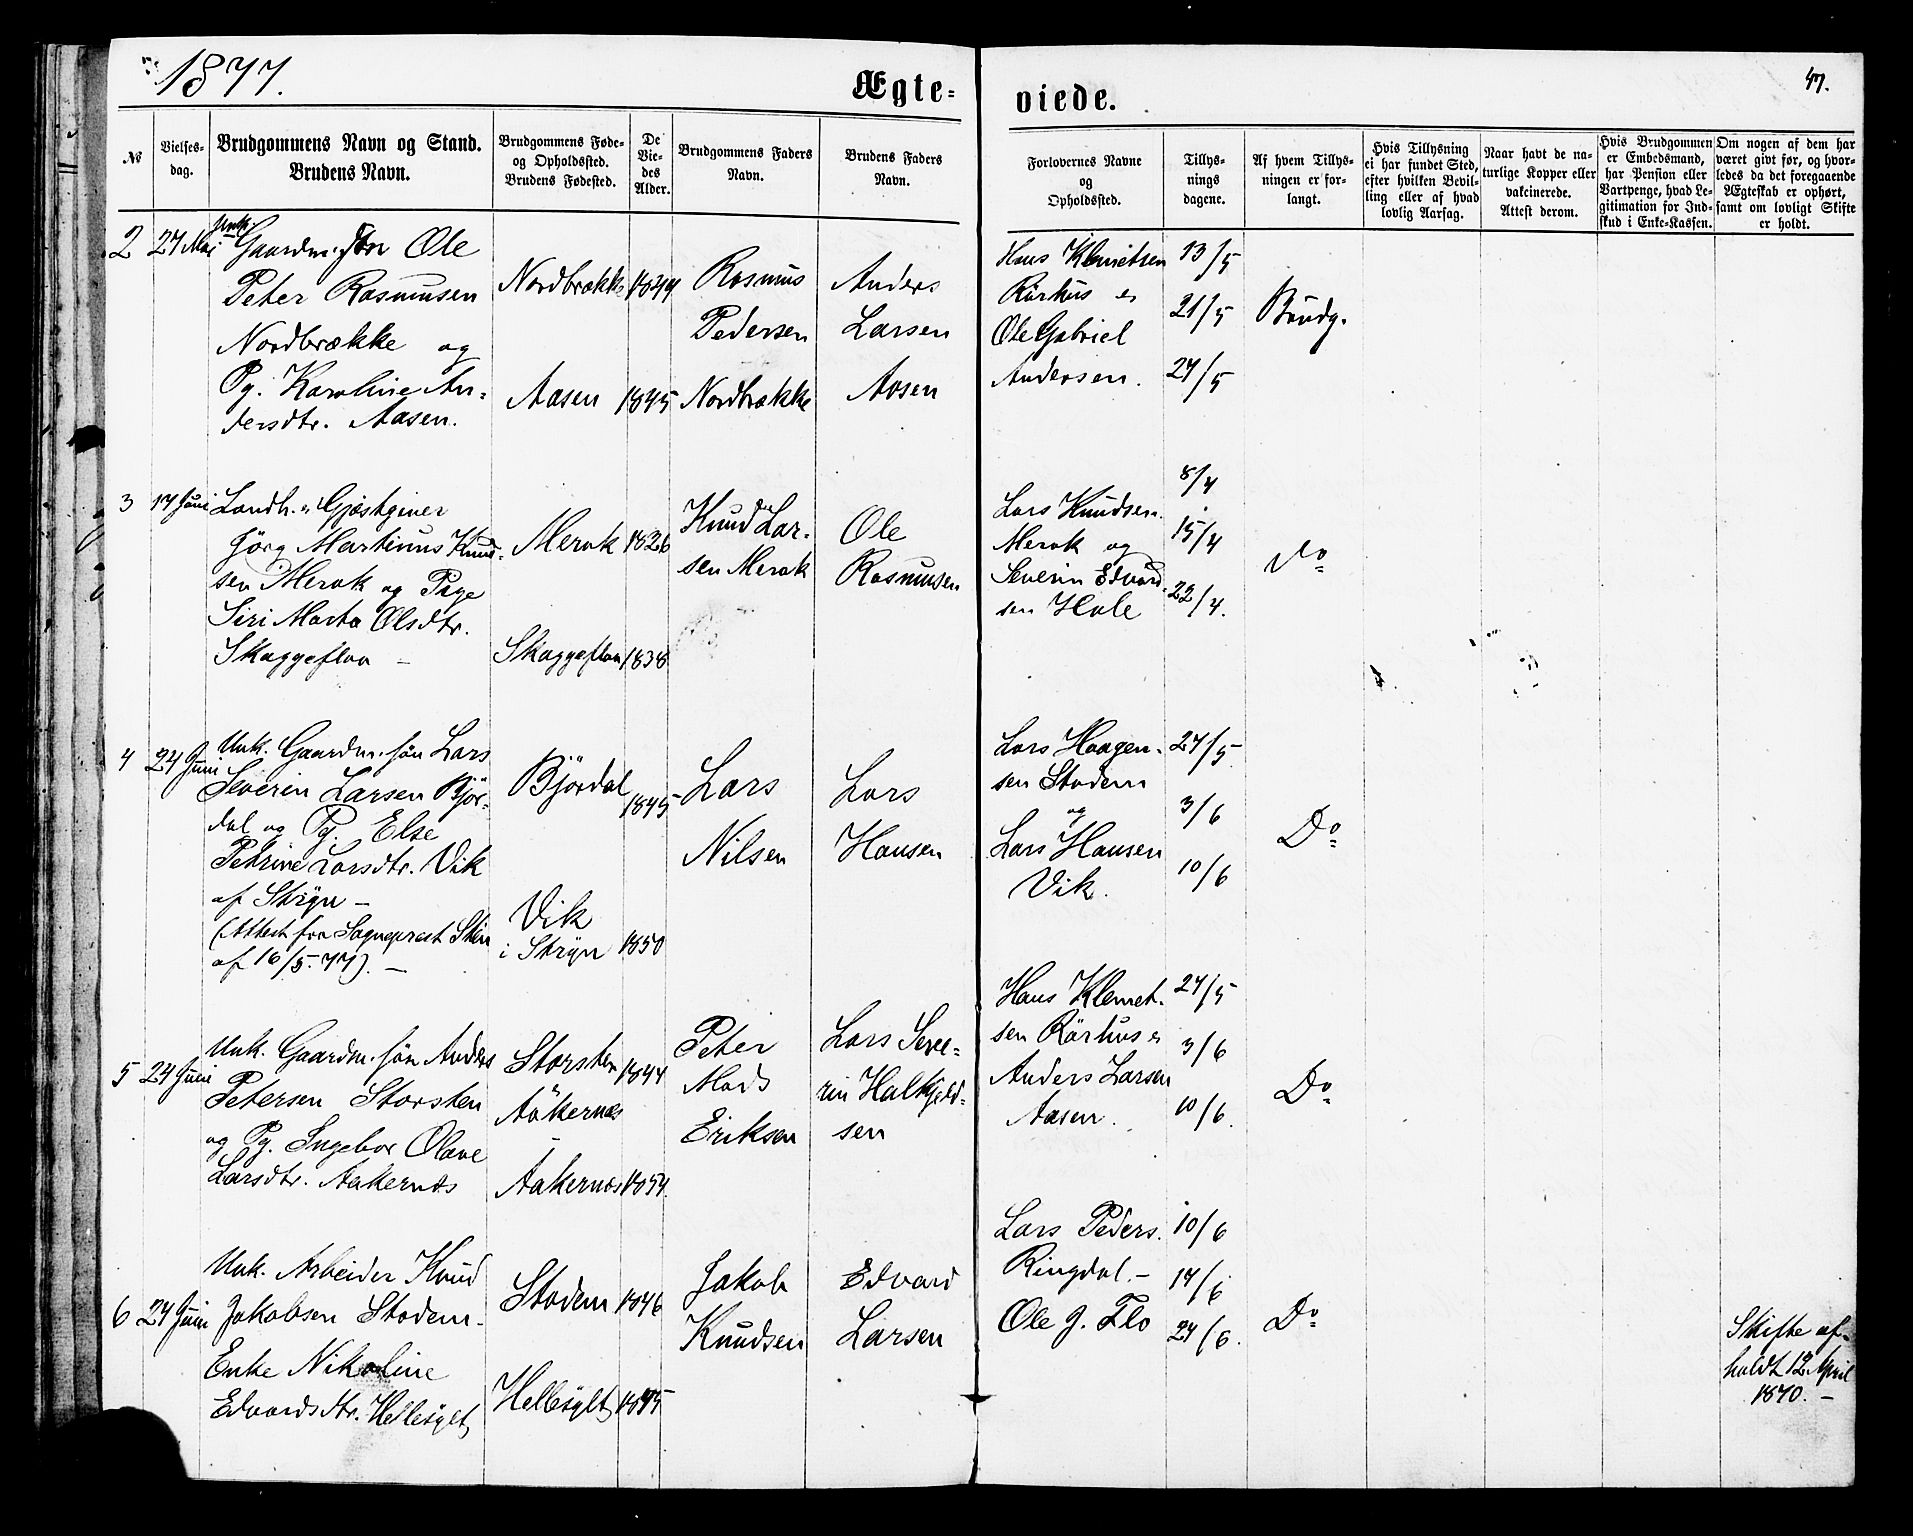 1877.
Ægte-
viede.
47.
№
Vielses-
dag.
Brudgommens Navn og Stand.
Brudens Navn.
Brudgommens Føde-
og Opholdssted.
Brudens Fødested.
De
Vie-
des
Alder.
Brudgommens Faders
Navn.
Brudens Faders
Navn.
Forlovernes Navne
og
Opholdssted.
Tillys-
nings
dagene.
Af hvem Tillys-
ningen er for-
langt.
Hvis Tillysning
ei har fundet Sted,
efter hvilken Bevil-
ling eller af hvad
lovlig Aarsag.
Naar havt de na-
turlige Kopper eller
vakcinerede.
Attest derom.
Hvis Brudgommen
er Embedsmand,
har Pension eller
Vartpenge, hvad Le-
gitimation for Ind-
skud i Enke-Kassen.
Om nogen af dem har
været givt før, og hvor-
ledes da det foregaaende
Ægteskab er ophørt,
samt om lovligt Skifte
er holdt.
2 27 Mai
Unk.
Gaardm. søn Ole
Peter Rasmusen
Nordbrække og
Pg. Karoline An-
dersdtr. Aasen.
Nordbrække 1849
Aasen 1845
Rasmus
Pedersen
Nordbrække
Anders
Larsen
Aasen
Hans Klemetsen
Rørhus
Ole Gabriel
Andersen.
13/5
21/5
27/5
Brudg.
3 17 Juni
Landh. Gjæstgiver
Jörg Martinus Knud-
sen Merok og Pige
Siri Marta Olsdtr.
Skaggeflaa -
Merok 1826
Skaggeflaa 1838
Knud Lar-
sen Merok
Ole
Rasmusen
Lars Knudsen
Merok og
Severin Edvard-
sen Hole
8/4
15/4
22/4.
Do
4 24 Juni
Unk. Gaardm. søn Lars
Severin Larsen Björ-
dal og Pg. Else
Petrine Larsdtr. Vik
af Stryn -
(Attest fra Sogneprest Sten
af 16/5. 77). -
Björdal 1845
Vik
i Stryn 1850
Lars
Nilsen
Lars
Hansen
Lars Haagen-
sen Stadem
og
Lars Hansen
Vik.
27/5
3/6
10/6
Do
5 24 Juni
Unk. Gaardm. søn Anders
Petersen Storsten
og Pg. Ingebor Olave
Larsdtr. Aakernes
Storsten 1844
Aakernes
Aakernes 1854.
Peter
Mads
Eriksen
Lars Seve-
rin Halkjeld-
sen
Hans Klemet-
sen Rörhus
Anders Larsen
Aasen.
27/5
3/6
10/6.
Do
6 24 Juni
Unk. Arbeider Knud
Jakobsen Stadem -
Enke Nikoline
Edvardsdtr. Hellesylt
Stadem 1846
Hellesylt 1845
Jakob
Knudsen
Edvard
Larsen
Lars Peders.
Ringdal. -
Ole J. Flo
10/6
17/6
24/6.
Do
Skifte af-
holdt 12 April
1870. -